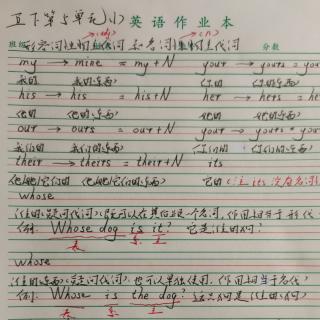 五下第5单元(1) 英语作业本
班级 形容词性物主代词 和 名词性物主代词 分数
my → mine = my+N your → yours = you
我的 我的东西 你的 你的东西
his → his = his+N her → hers = he
他的 他的东西 她的 她的东西
our → ours = our+N your → yours = you
我们的 我们的东西 你们的 你们的东西
their → theirs = their+N its
他/她/它们的 他/她/它们的东西 它的 (注 its 没有名词
whose
(谁的)(疑问代词),既可以在其后跟一个名词,作用相当于形代
例: Whose dog is it? 它是谁的狗?
表 系 主
whose
(谁的东西)(疑问代词),也可以单独使用,作用相当于名代
例: Whose is the dog? 这只狗是谁的(狗)
表 系 主